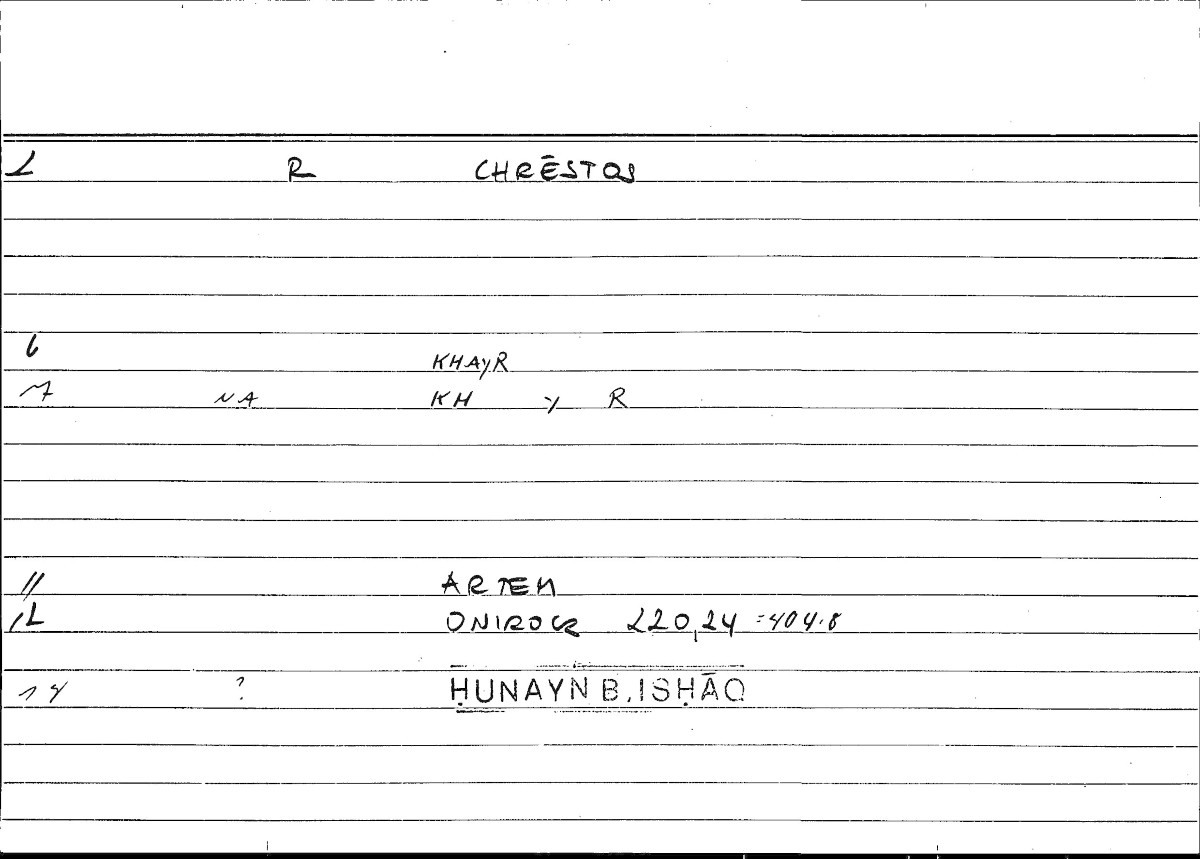 2 R CHRĒSTOS
6 KHAYR
7 NA KH Y R
11 ARTEM
12 ONIROCR 220,24 =404.8
14 ? ḤUNAYN B. ISḤĀQ